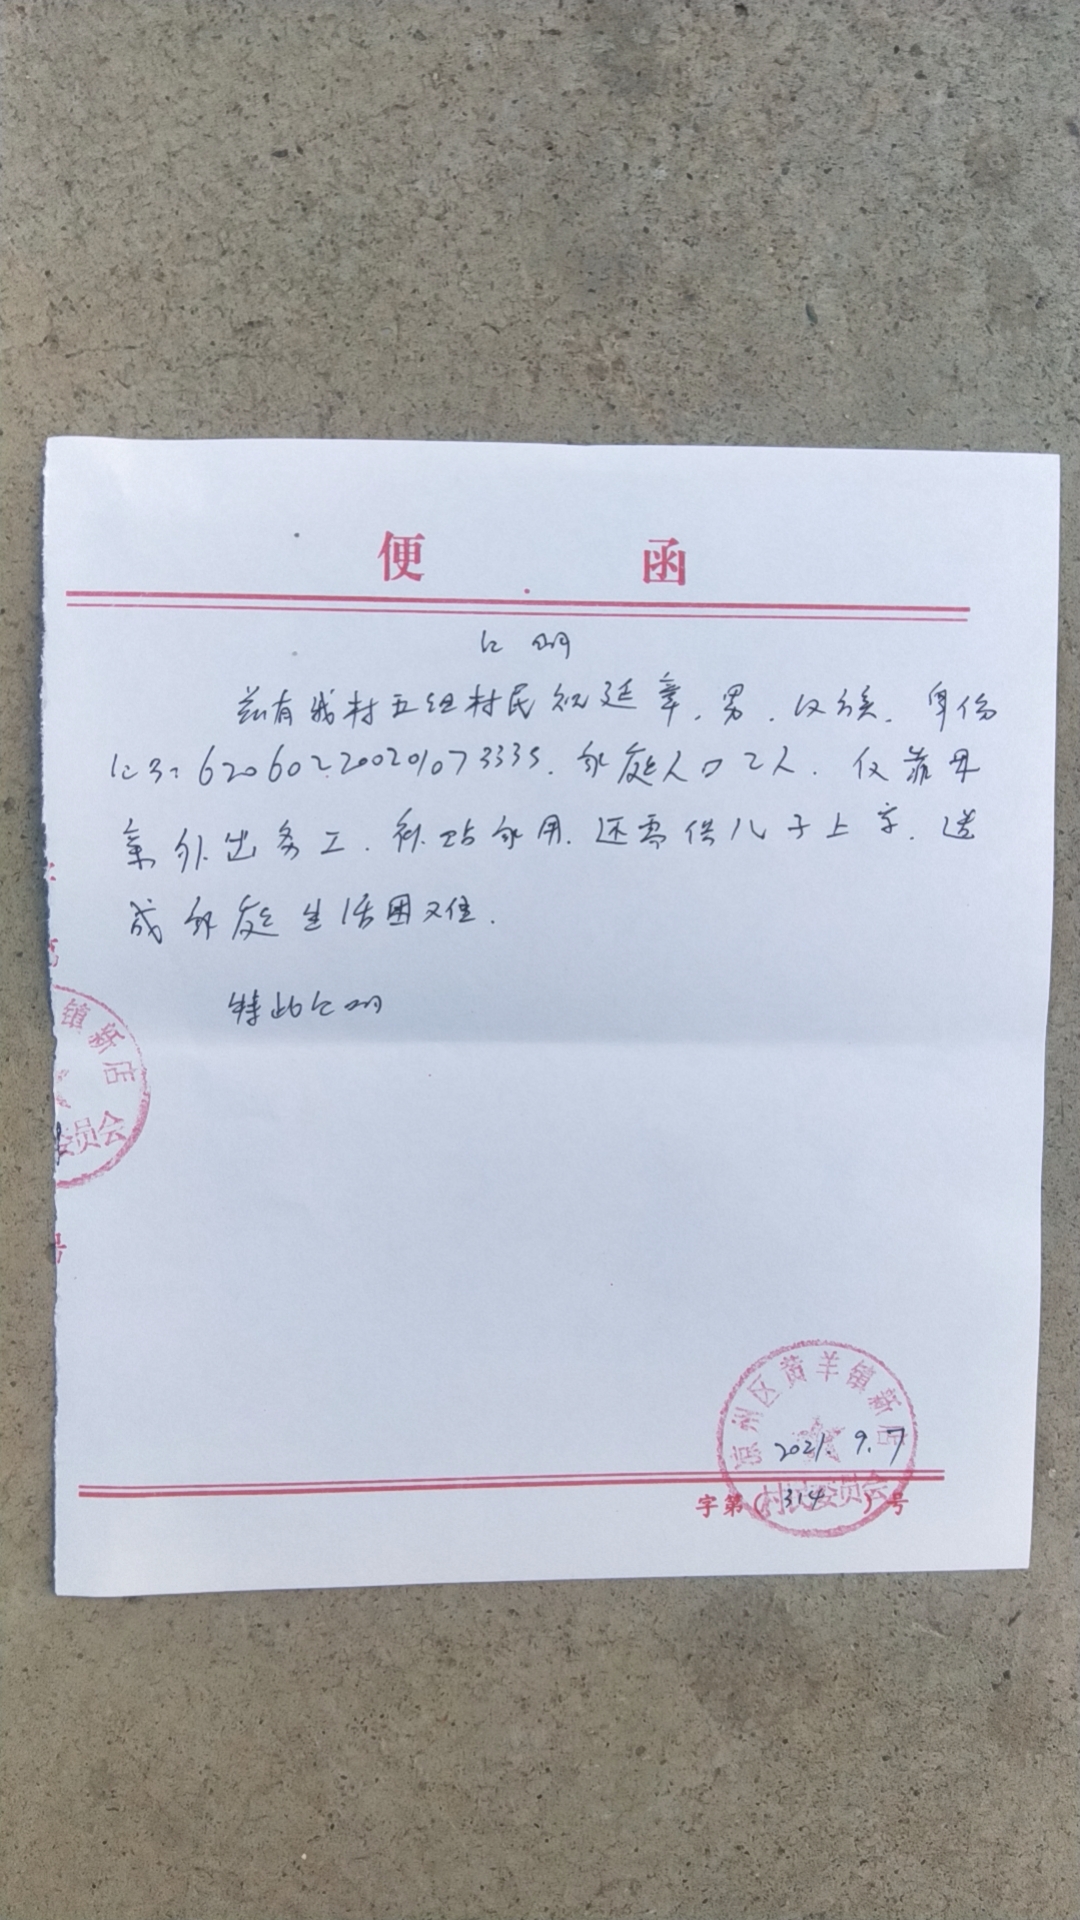 便 函
证明
兹有我村五组村民祝廷章,男,汉族,身份
证号:620602200201073335,家庭人口2人,仅靠母
亲外出务工,补贴家用,还需供儿子上学,造
成家庭生活困难.
特此证明
镇新店
委员会
号
凉州区黄羊镇新店
村民委员会
2021.9.7
字第(314)号